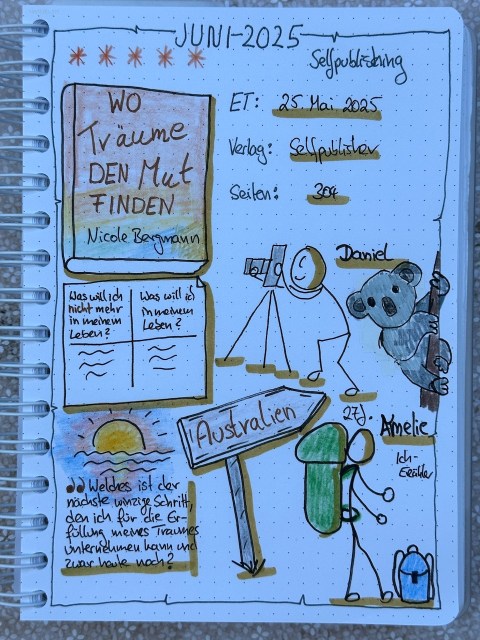 JUNI-2025
Selfpublishing
WO
Träume
DEN Mut
FINDEN
Nicole Bergmann
ET: 25. Mai 2025
Verlag: Selfpublisher
Seiten: 304
Daniel
Was will ich
nicht mehr
in meinem
Leben?
Was will ich
in meinem
Leben?
Australien
27J.
Amelie
Ich-
Erzähler
Welches ist der
nächste winzige Schritt,
den ich für die Er-
füllung meines Traumes
unternehmen kann und
zwar heute noch?